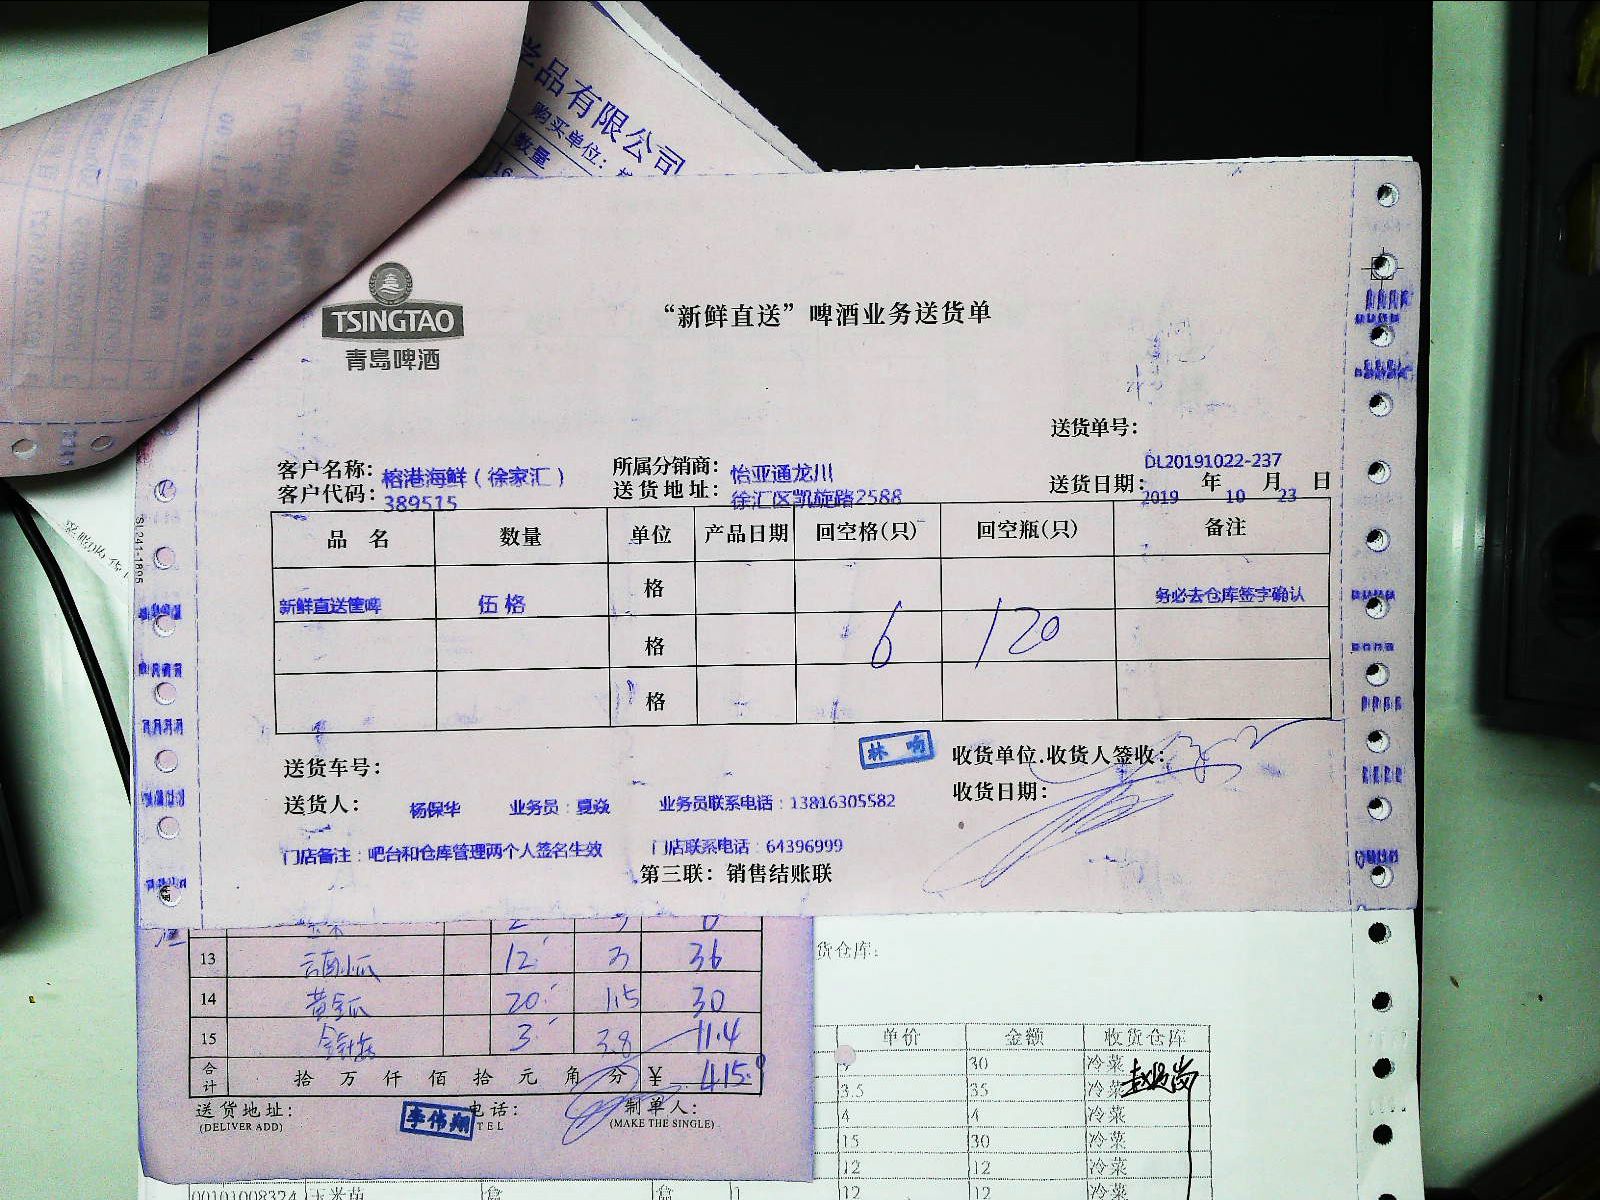 学品有限公司
购买单位：
数量
16
TSINGTAO
青岛啤酒
“新鲜直送”啤酒业务送货单
送货单号：
DL20191022-237
客户名称：榕港海鲜（徐家汇） 所属分销商：怡亚通龙川
客户代码：389515 送货地址：徐汇区凯旋路2588 送货日期：2019年10月23日
品名 数量 单位 产品日期 回空格(只) 回空瓶(只) 备注
新鲜直送筐啤 伍格 格 务必去仓库签字确认
格 6 120
格
林响
送货车号： 收货单位.收货人签收：
送货人：杨保华 业务员：夏焱 业务员联系电话：13816305582 收货日期：
门店备注：吧台和仓库管理两个人签名生效 门店联系电话：64396999
第三联：销售结账联
SL241-1895
13 云南小瓜 12 3 36
14 黄金瓜 20 1.5 30
15 金针菇 3 3.8 11.4
合计 拾万仟佰拾元角分 ¥ 415.9
送货地址： 电话： 制单人：
(DELIVER ADD) TEL (MAKE THE SINGLE)
李伟翔
货仓库：
单价 金额 收货仓库
30 冷菜
3.5 35 冷菜
4 4 冷菜
15 30 冷菜
12 12 冷菜
00101008324 玉米苗 盒 盒 1 12 12 冷菜